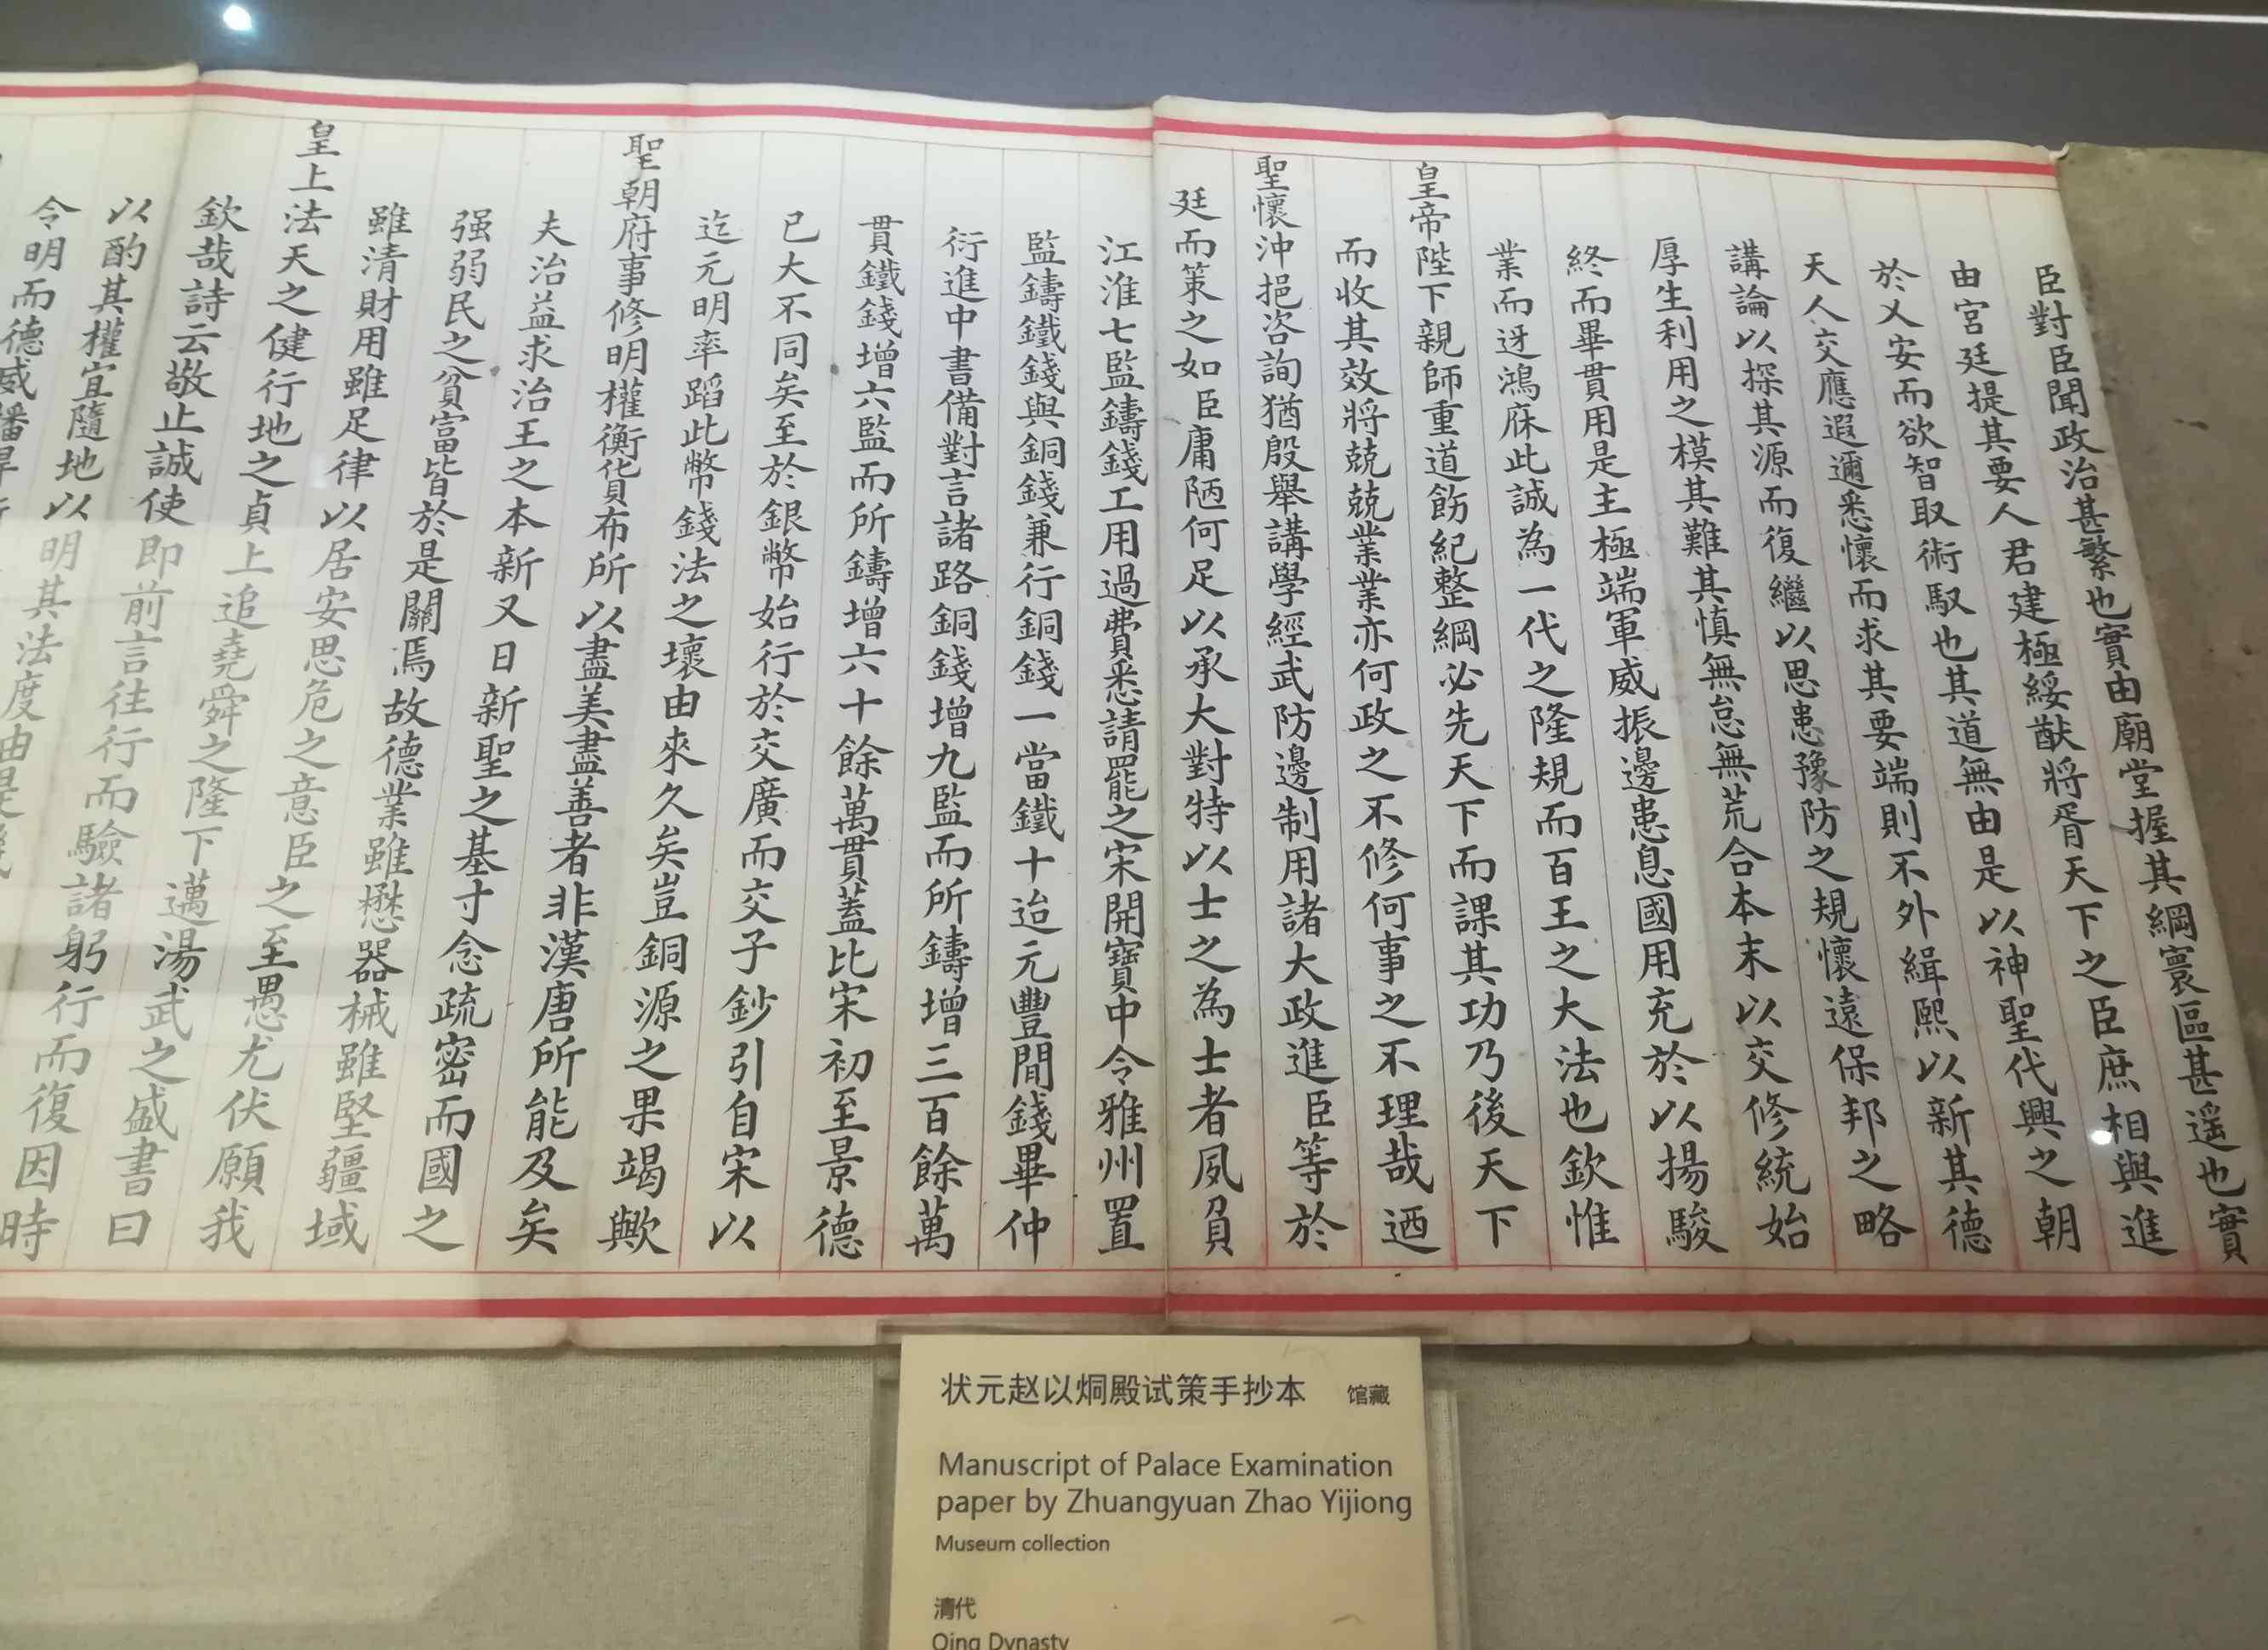 臣對臣聞政治甚繁也實由廟堂握其綱寰區甚遥也實
由宮廷提其要人君建極綏猷將胥天下之臣庶相與進
於乂安而欲智取術馭也其道無由是以神聖代興之朝
天人交應遐邇悉懷而求其要端則不外緝熙以新其德
講論以探其源而復繼以思患豫防之規懷遠保邦之略
厚生利用之模其難其慎無怠無荒合本末以交修統始
終而畢貫用是主極端軍威振邊患息國用充於以揚駿
業而迓鴻庥此誠為一代之隆規而百王之大法也欽惟
皇帝陛下親師重道飭紀整綱必先天下而課其功乃後天下
而收其效將兢兢業業亦何政之不修何事之不理哉迺
聖懷沖挹咨詢猶殷舉講學經武防邊制用諸大政進臣等於
廷而策之如臣庸陋何足以承大對特以士之為士者夙負
江淮七監鑄錢工用過費悉請罷之宋開寶中令雅州置
監鑄鐵錢與銅錢兼行銅錢一當鐵十迨元豐間錢畢仲
衍進中書備對言諸路銅錢增九監而所鑄增三百餘萬
貫鐵錢增六監而所鑄增六十餘萬貫蓋比宋初至景德
已大不同矣至於銀幣始行於交廣而交子鈔引自宋以
迄元明率蹈此幣錢法之壞由來久矣豈銅源之果竭歟
聖朝府事修明權衡貨布所以盡美盡善者非漢唐所能及矣
夫治益求治王之本新又日新聖之基寸念疏密而國之
强弱民之貧富皆於是關焉故德業雖懋器械雖堅疆域
雖清財用雖足律以居安思危之意臣之至愚尤伏願我
皇上法天之健行地之貞上追堯舜之隆下邁湯武之盛書曰
欽哉詩云敬止誠使即前言往行而驗諸躬行而復因時
以酌其權宜隨地以明其法度由是
令明而德威播
状元赵以炯殿试策手抄本 馆藏
Manuscript of Palace Examination
paper by Zhuangyuan Zhao Yijiong
Museum collection
清代
Qing Dynasty